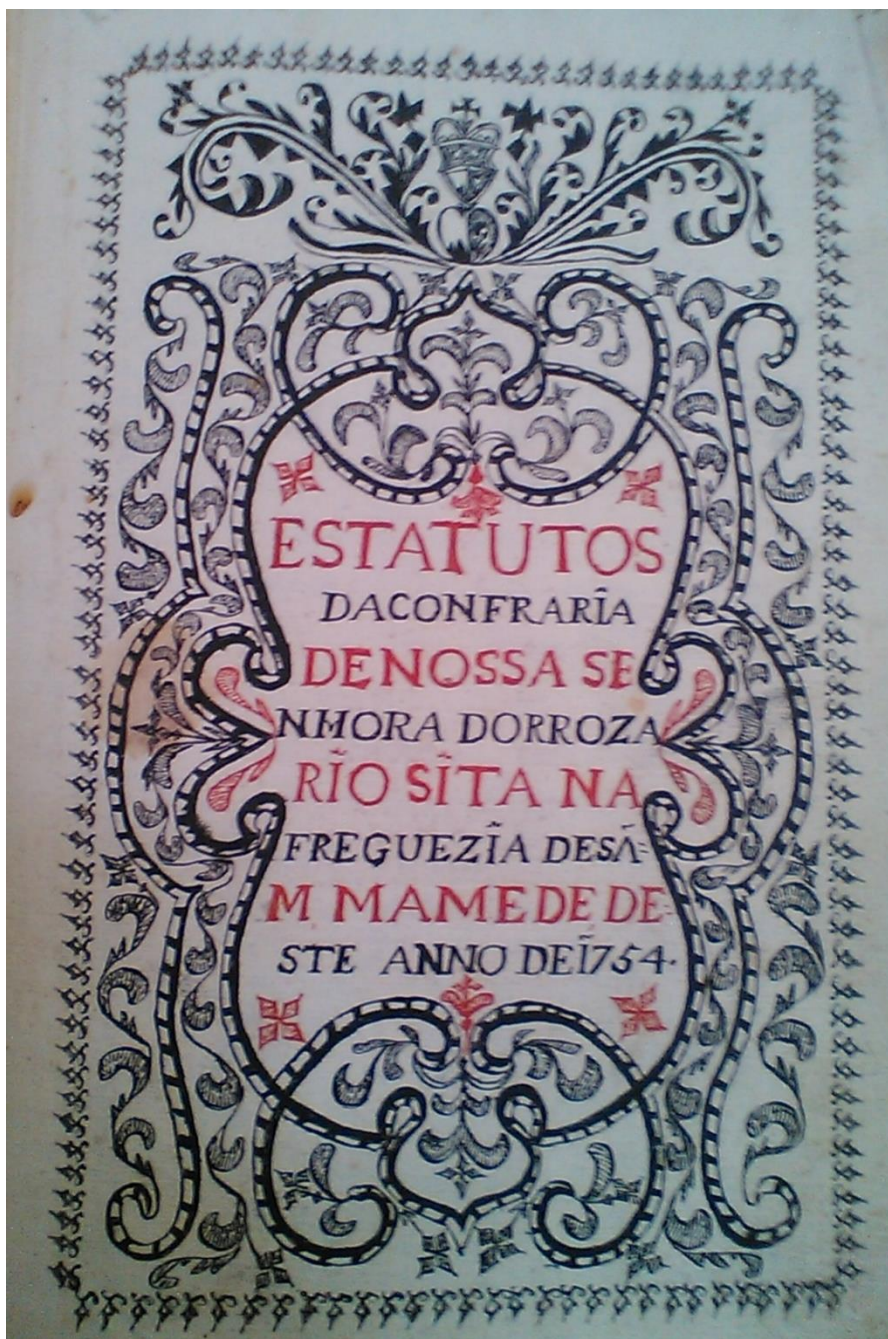 ESTATUTOS
DACONFRARĨA
DENOSSA SE
NHORA DORROZA
RĨO SĨTA NA
FREGUEZĨA DESÁ=
M MAMEDE DE=
STE ANNO DEĨ754.